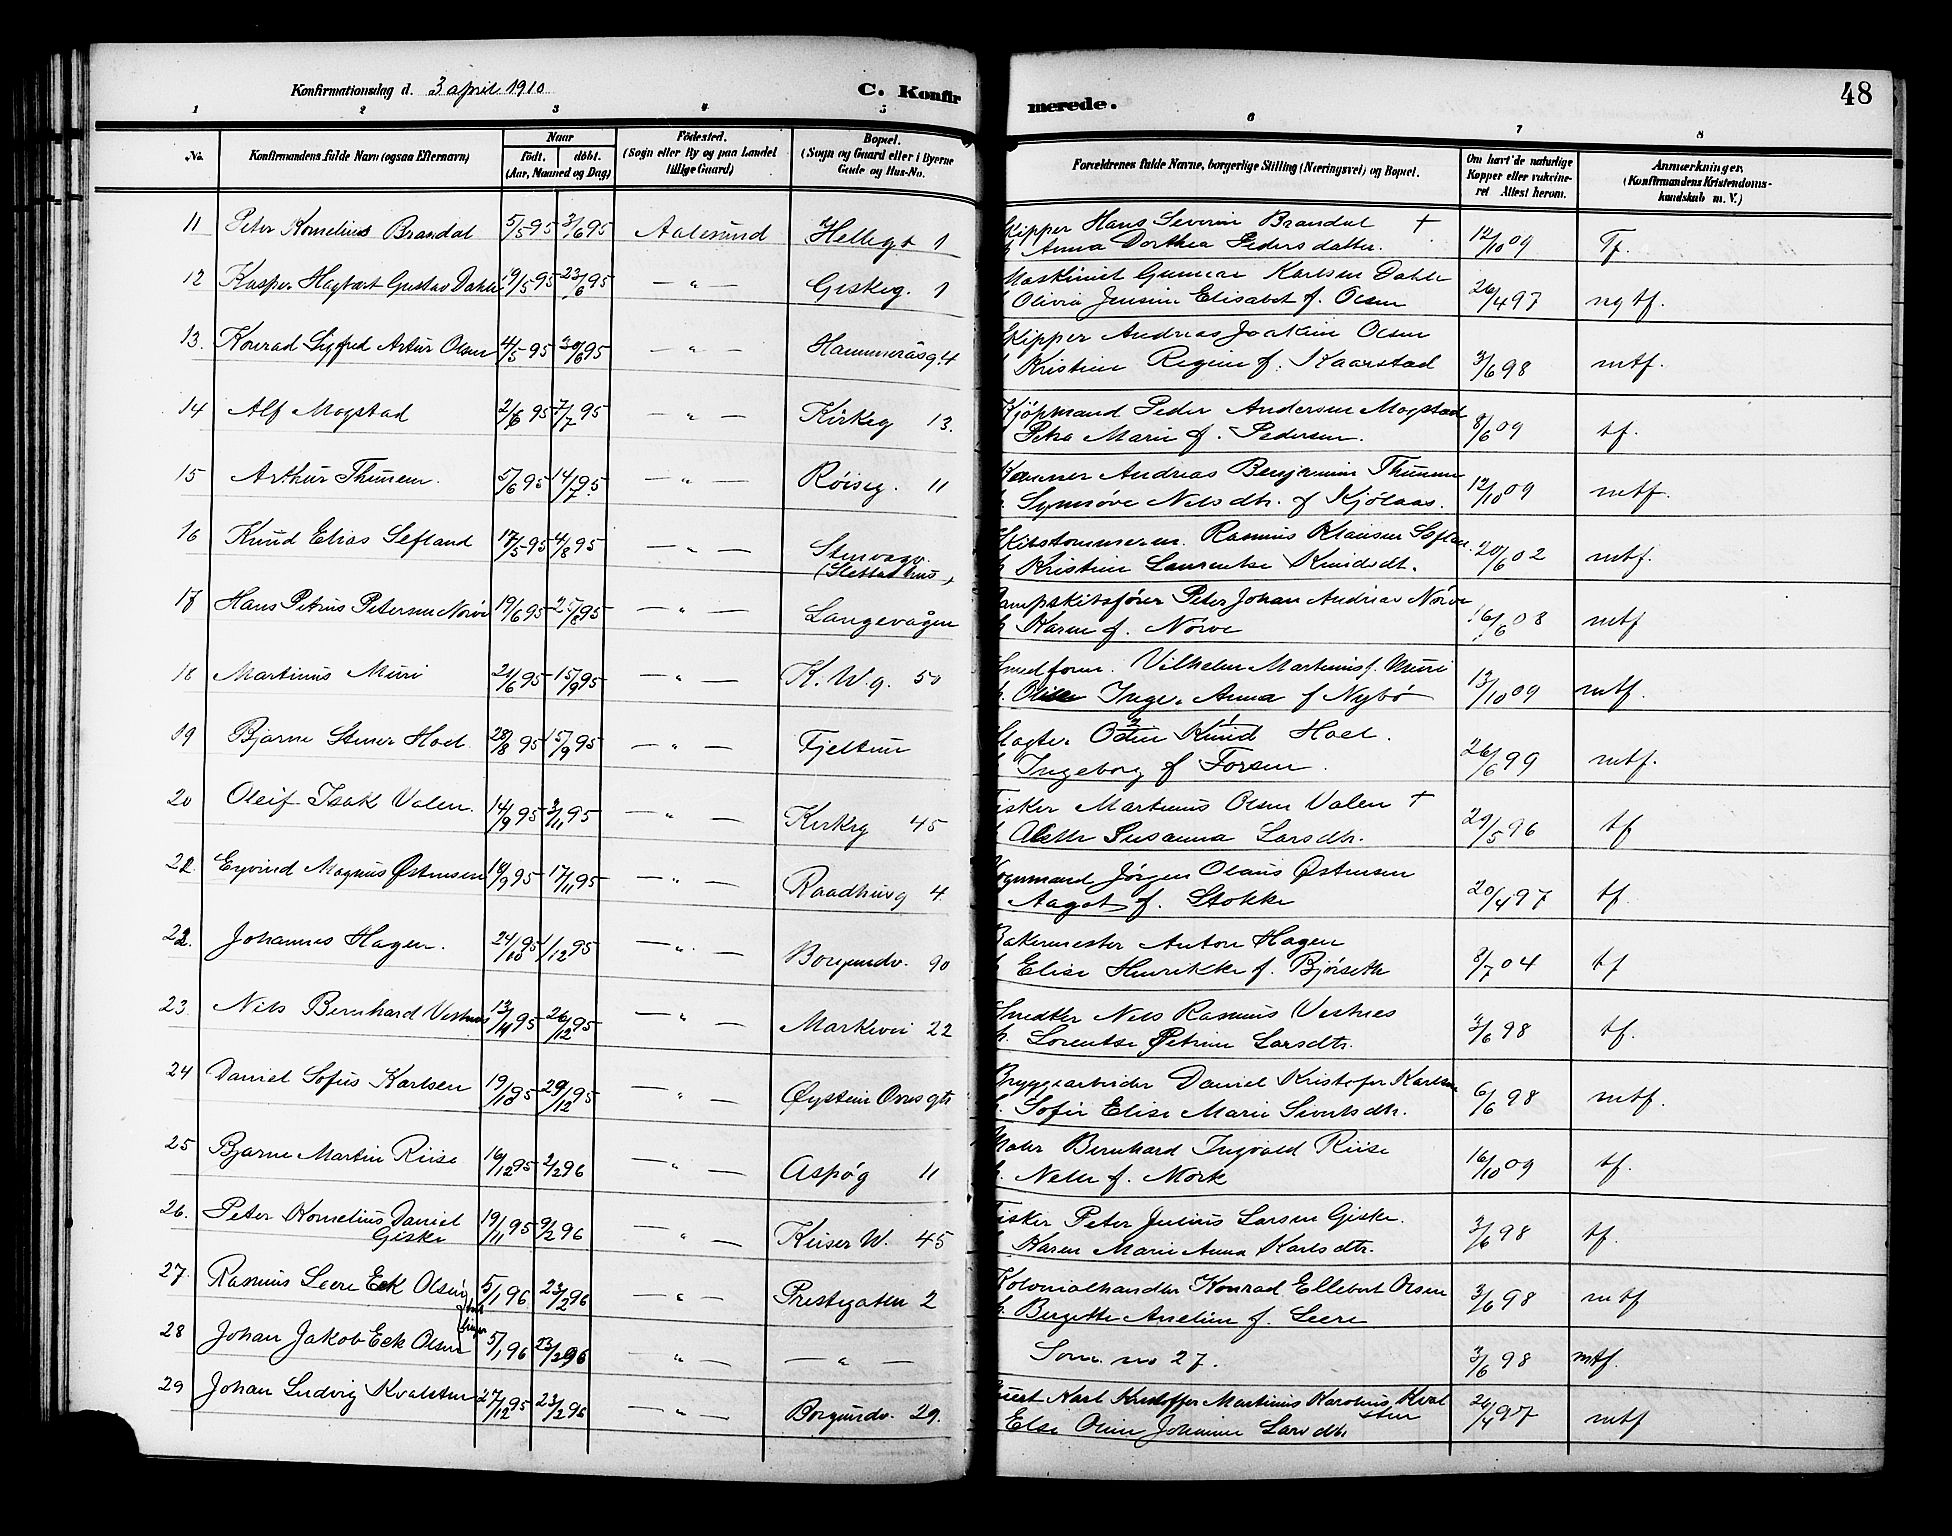 Konfirmationsdag d. 3 april 1910
C. Konfirmerede.
48
1 2 3 4 5 6 7 8
No. Konfirmandens fulde Navn (ogsaa Efternavn) Naar födt. döbt. (Aar, Maaned og Dag) Födested. (Sogn eller By og paa Landet tillige Gaard) Bopæl. (Sogn og Gaard eller i Byerne Gade og Hus-No. Forældrenes fulde Navne, borgerlige Stilling (Næringsvei) og Bopæl. Om havt de naturlige Kopper eller vakcineret Attest herom. Anmærkninger, (Konfirmandens Kristendomskundskab m. V.)
11 Peter Kornelius Brandal 5/5 95 3/6 95 Aalesund Hellegt 1 Skipper Hans Severin Brandal † 12/10 09 Tf.
Anna Dorthea Pedersdatter.
12 Kasper Hagbart Gustav Dahle 19/5 95 23/6 95 — " — Giskeg. 1 Maskinist Gunnar Karlsen Dahle 26/4 97 ng tf.
Olivia Jensine Elisabet f. Olsen
13. Konrad Sigfred Artur Olsen 4/5 95 30/6 95 — " — Hammeråsg. 4 Skipper Andreas Joakim Olsen
Kristine Regine f. Kaarstad 3/6 98 mtf.
14 Alf Mogstad 2/6 95 7/7 95 — " — Kirkeg 13. Kjöpmand Peder Andersen Mogstad 8/6 09 tf.
Petra Marie f. Pedersen.
15 Arthur Thunem. 5/6 95 14/7 95 — " — Röiseg. 11 Andreas Benjamin Thunem 12/10 09 mtf.
Synnöve Nelsdtr. f Kjölaas.
16 Knud Elias Sefland 17/5 95 4/8 95 — " — Stenvaagv. Skibstömmerm. Rasmus Klausen Seflan 20/6 02 mtf.
(Slettas hus) Kristine Laurentse Knudsdt.
17 Hans Petrus Petersen Nörve 19/6 95 25/8 95 — " — Langevågen Dampskibsförer Peter Johan Andreas Nörve 16/6 08 mtf
Karen f. Nörve
18 Martinus Muri 21/6 95 15/9 95 — " — K. W. g. 50 Smedform. Vilhelm Martinus f. Muri 13/10 09 mtf.
Inge. Anna f Nybö
19 Bjarne Stener Hoel 28/8 95 15/9 95 — " — Fjeltun Slagter Odin Knud Hoel. 26/6 99 mtf.
Ingeborg f Forsen.
20 Oleif Isak Valen. 14/9 95 3/11 95 — " — Kirkeg 45 Fisker Martinus Olsen Valen † 29/5 96 tf
Alette Susanna Larsdtr.
22 Eyvind Magnus Østensen 18/9 95 17/11 95 — " — Raadhusg 4 Vognmand Jörgen Olaus Östensen 20/4 97 tf.
Aagot f. Stokke
22. Johannes Hagen. 24/10 95 1/12 95 — " — Borgundv. 90 Bakermester Anton Hagen 8/7 04 tf
Elise Henrikke f. Bjørseth
23 Nils Bernhard Vestnes 13/11 95 26/12 95 — " — Markevei 22 Smedtler Nels Rasmus Vestnes 3/6 98 tf.
Lorentse Petrine Larsdtr.
24 Daniel Sofus Karlsen 19/10 95 29/12 95 — " — Øystein Orres gt. Bryggearbeider Daniel Kristofer Karlsen 6/6 98 mtf.
Sofie Elise Marie Sivertsdtr.
25 Bjarne Martin Riise 16/12 95 2/2 96 — " — Aspög 11 Maler Bernhard Ingvald Riise 16/10 09 tf.
Nelle f. Mork
26. Peter Kornelius Daniel Giske 19/11 95 9/2 96 — " — Keiser W. 45 Fisker Peter Julius Larsen Giske. 3/6 98 tf.
Karen Marie Anna Karlsdtr.
27. Rasmus Leere Eck Olsen 5/1 96 23/2 96 — " — Prestegaten 2 Kolonialhandler Konrad Ellebert Olsen 3/6 98 mtf
Bergitte Aneline f. Leere
28 Johan Jakob Eck Olsen 5/1 96 23/2 96 — " — — " — Som no 27. 3/6 98 mtf.
29 Johan Ludvig Kvalsten 27/12 95 23/2 96 — " — Borgundv. 29. Karl Kristoffer Martinus Karolius Kvalsten 26/4 97 mtf
Else Oline Johanne Larsdtr